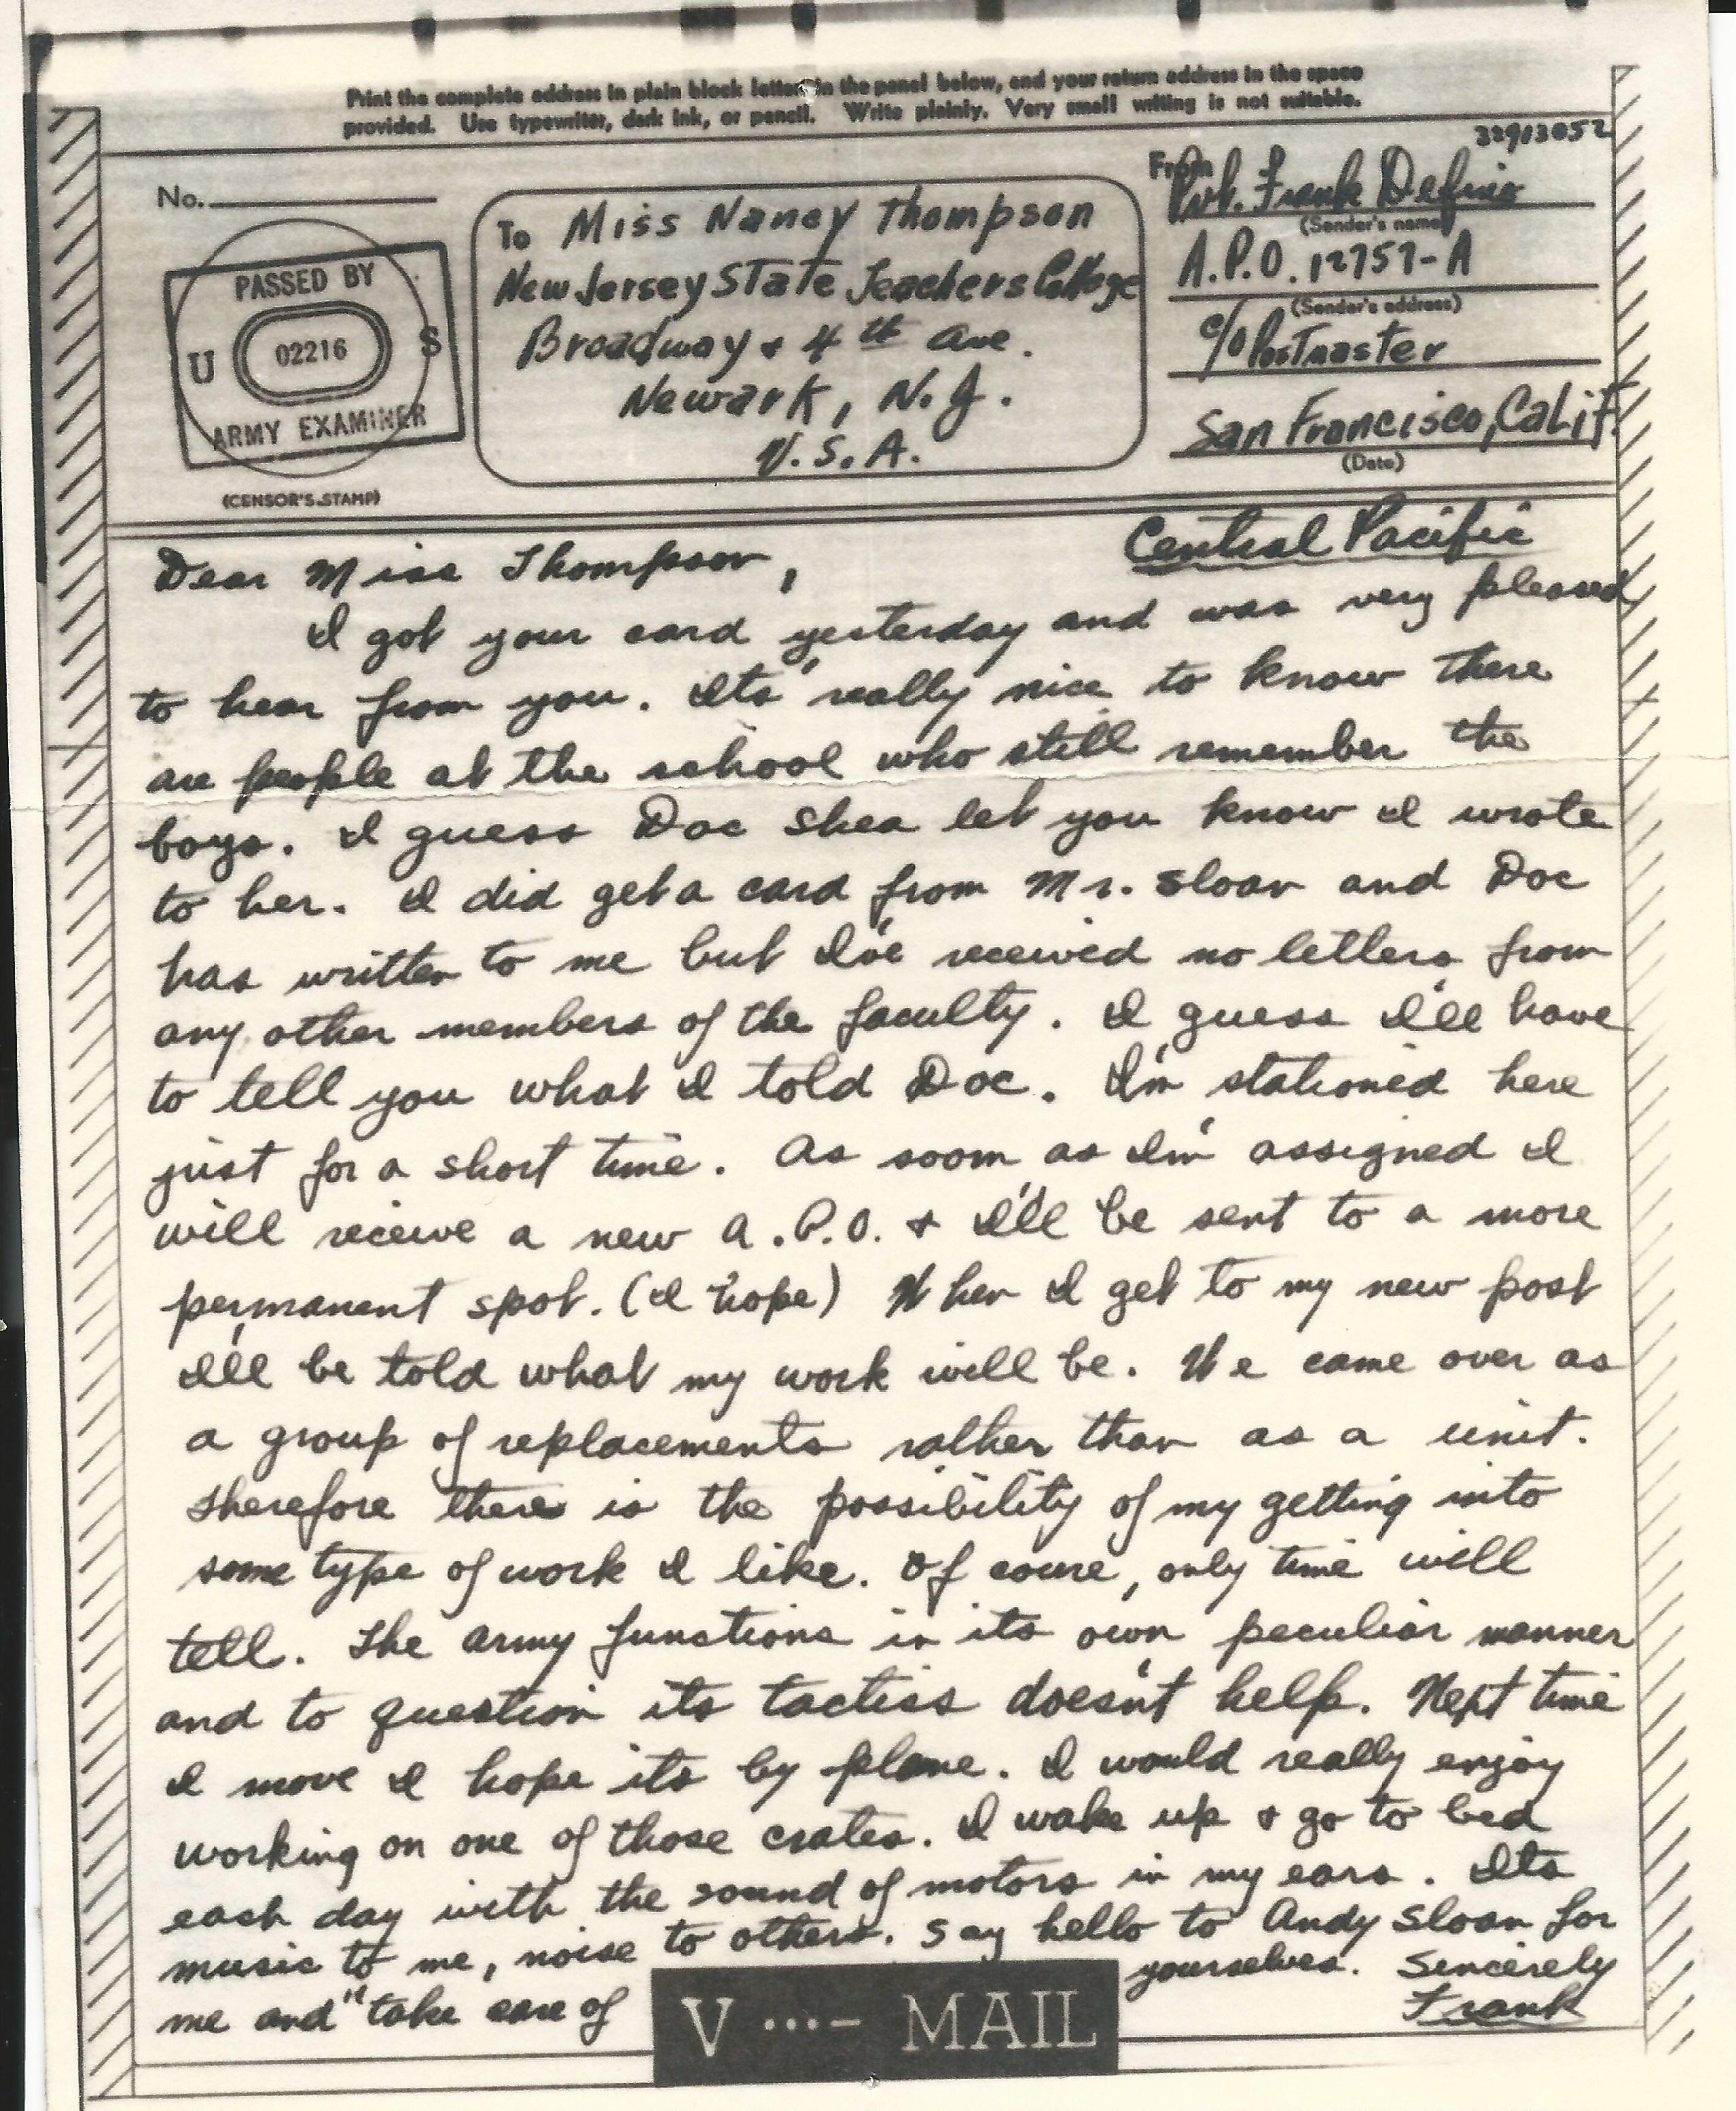 Print the complete address in plain block letters in the panel below, and your return address in the space
provided. Use typewriter, dark ink, or pencil. Write plainly. Very small writing is not suitable.
32913052
No.
PASSED BY
U 02216 S
ARMY EXAMINER
(CENSOR'S STAMP)
To Miss Nancy Thompson
New Jersey State Teachers College
Broadway & 4th Ave.
Newark, N.J.
U.S.A.
From
Pvt. Frank
(Sender's name)
A.P.O. 12757-A
(Sender's address)
c/o Postmaster
San Francisco, Calif.
(Date)
Central Pacific
Dear Miss Thompson,
I got your card yesterday and was very pleased
to hear from you. Its' really nice to know there
are people at the school who still remember the
boys. I guess Doc Shea let you know I wrote
to her. I did get a card from Mr. Sloan and Doc
has written to me but I've received no letters from
any other members of the faculty. I guess I'll have
to tell you what I told Doc. I'm stationed here
just for a short time. As soon as I'm assigned I
will receive a new A.P.O. & I'll be sent to a more
permanent spot. (I hope) When I get to my new post
I'll be told what my work will be. We came over as
a group of replacements rather than as a unit.
Therefore there is the possibility of my getting into
some type of work I like. Of course, only time will
tell. The army functions in its own peculiar manner
and to question its tactics doesn't help. Next time
I move I hope its by plane. I would really enjoy
working on one of those crates. I wake up & go to bed
each day with the sound of motors in my ears. Its
music to me, noise to others. Say hello to Andy Sloan for
me and "take care of yourselves. Sincerely
Frank
V ...- MAIL